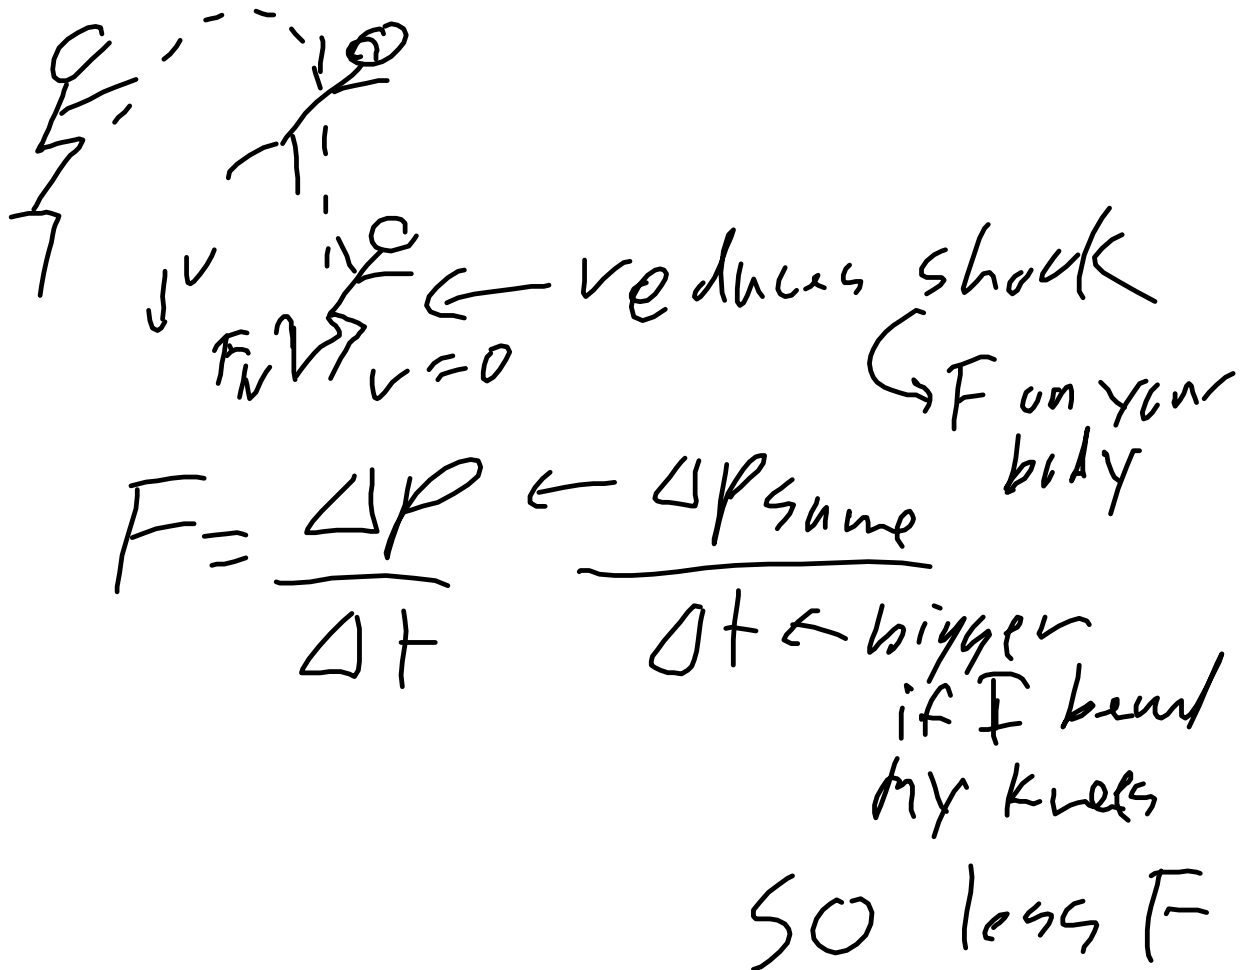 v
F_N
v=0
reduces shock
F on your
body
F = Δp / Δt ← Δp same / Δt ← bigger
if I bend
my knees
so less F